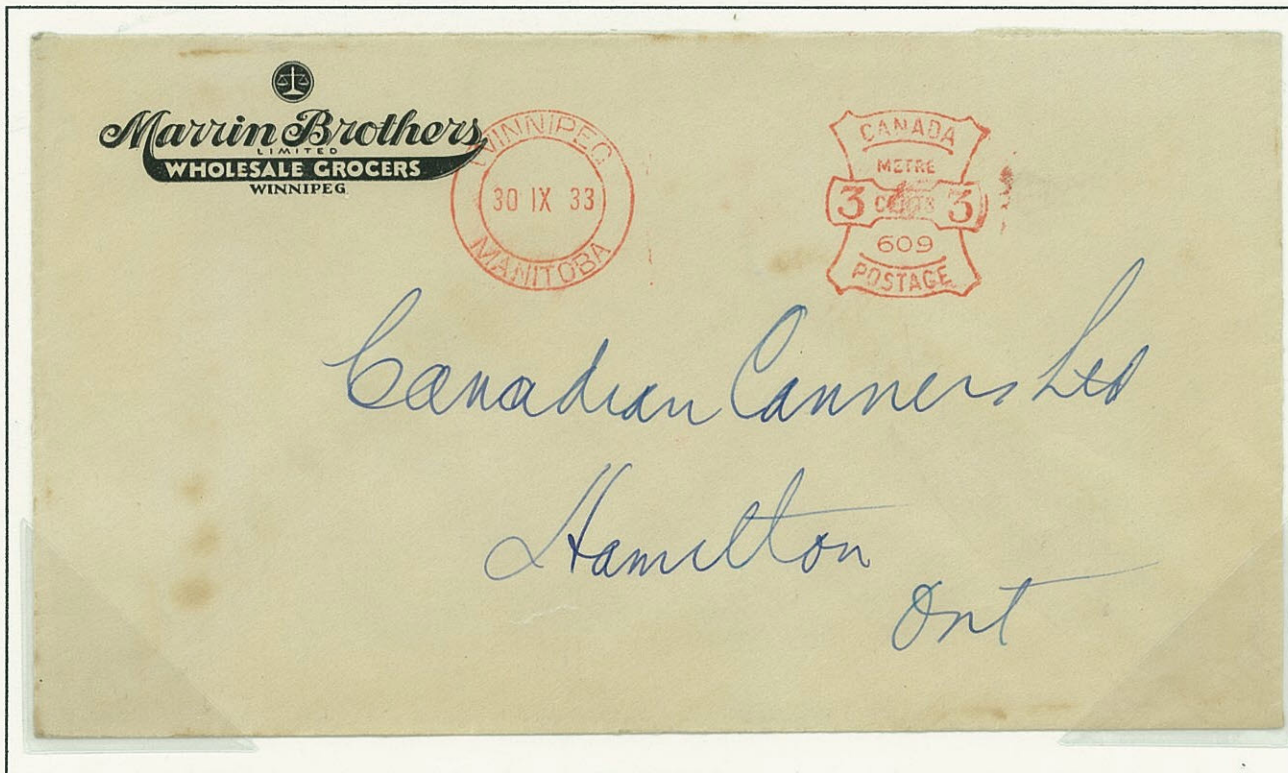 Marrin Brothers
LIMITED
WHOLESALE GROCERS
WINNIPEG
WINNIPEG
30 IX 33
MANITOBA
CANADA
METRE
3 CENTS 3
609
POSTAGE
Canadian Canners Ltd
Hamilton
Ont